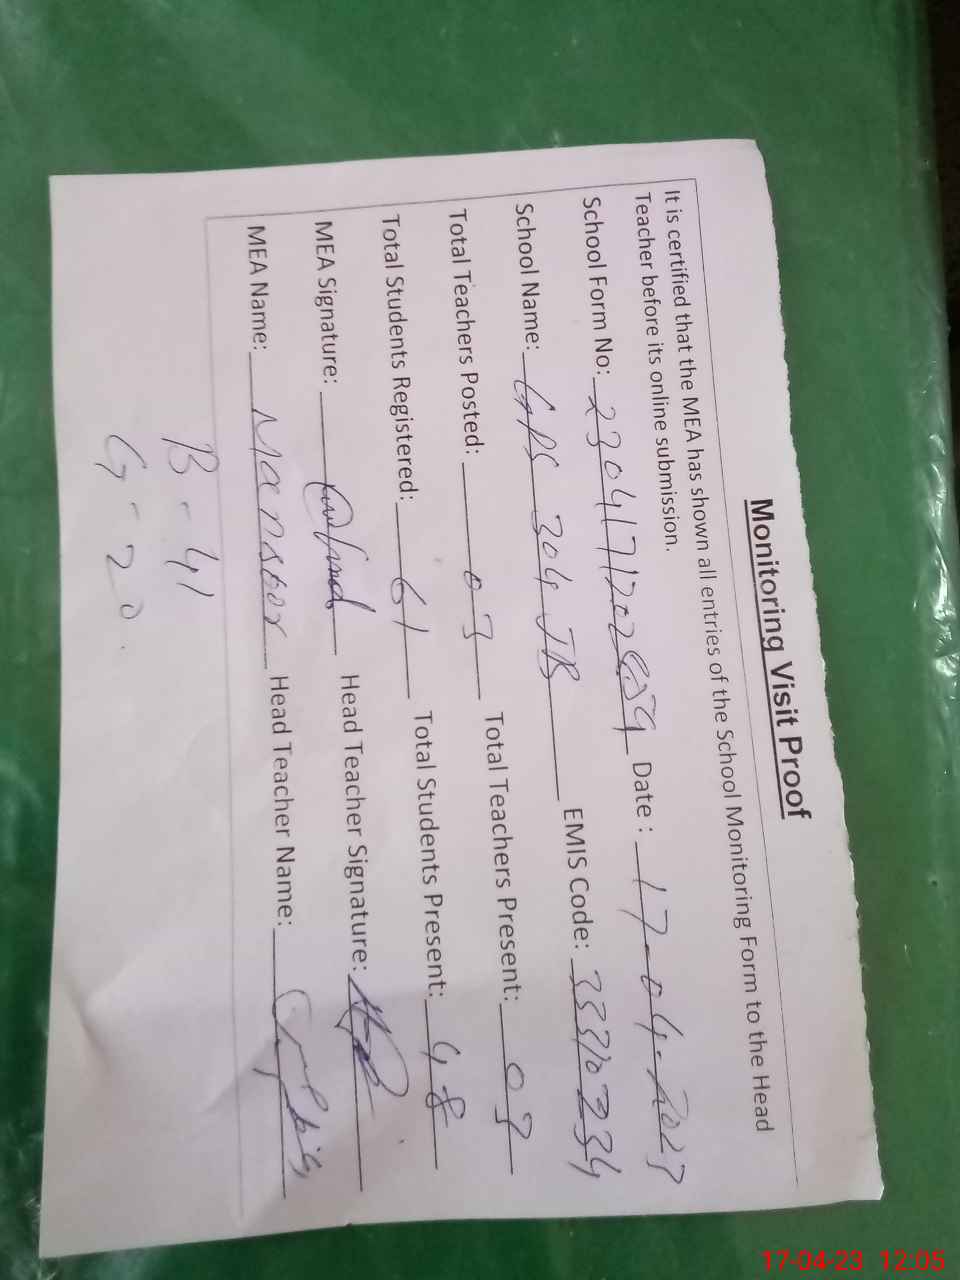 Monitoring Visit Proof
It is certified that the MEA has shown all entries of the School Monitoring Form to the Head
Teacher before its online submission.
School Form No: Date : 17-04-2023
School Name: GPS 304 JB EMIS Code:
Total Teachers Posted: 03 Total Teachers Present: 03
Total Students Registered: 61 Total Students Present: 48
MEA Signature: Head Teacher Signature:
MEA Name: Mansoor Head Teacher Name:
B - 41
G - 20
17-04-23 12:05